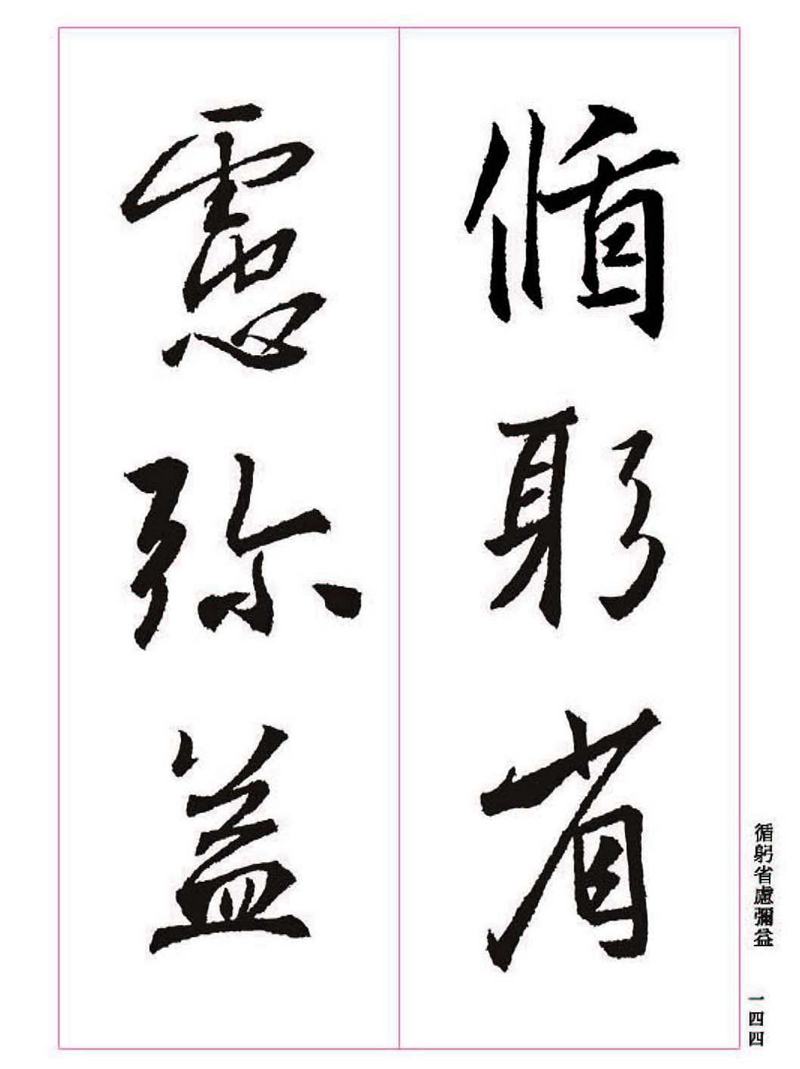 循躬省
慮弥益
循躬省慮彌益
一四四